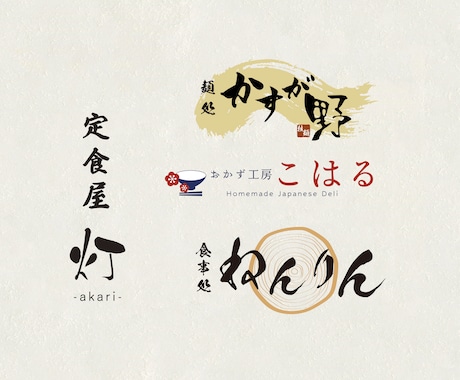 定食屋
灯
-akari-
麺処
かすが野
おかず工房 こはる
Homemade Japanese Deli
食事処
ねんりん